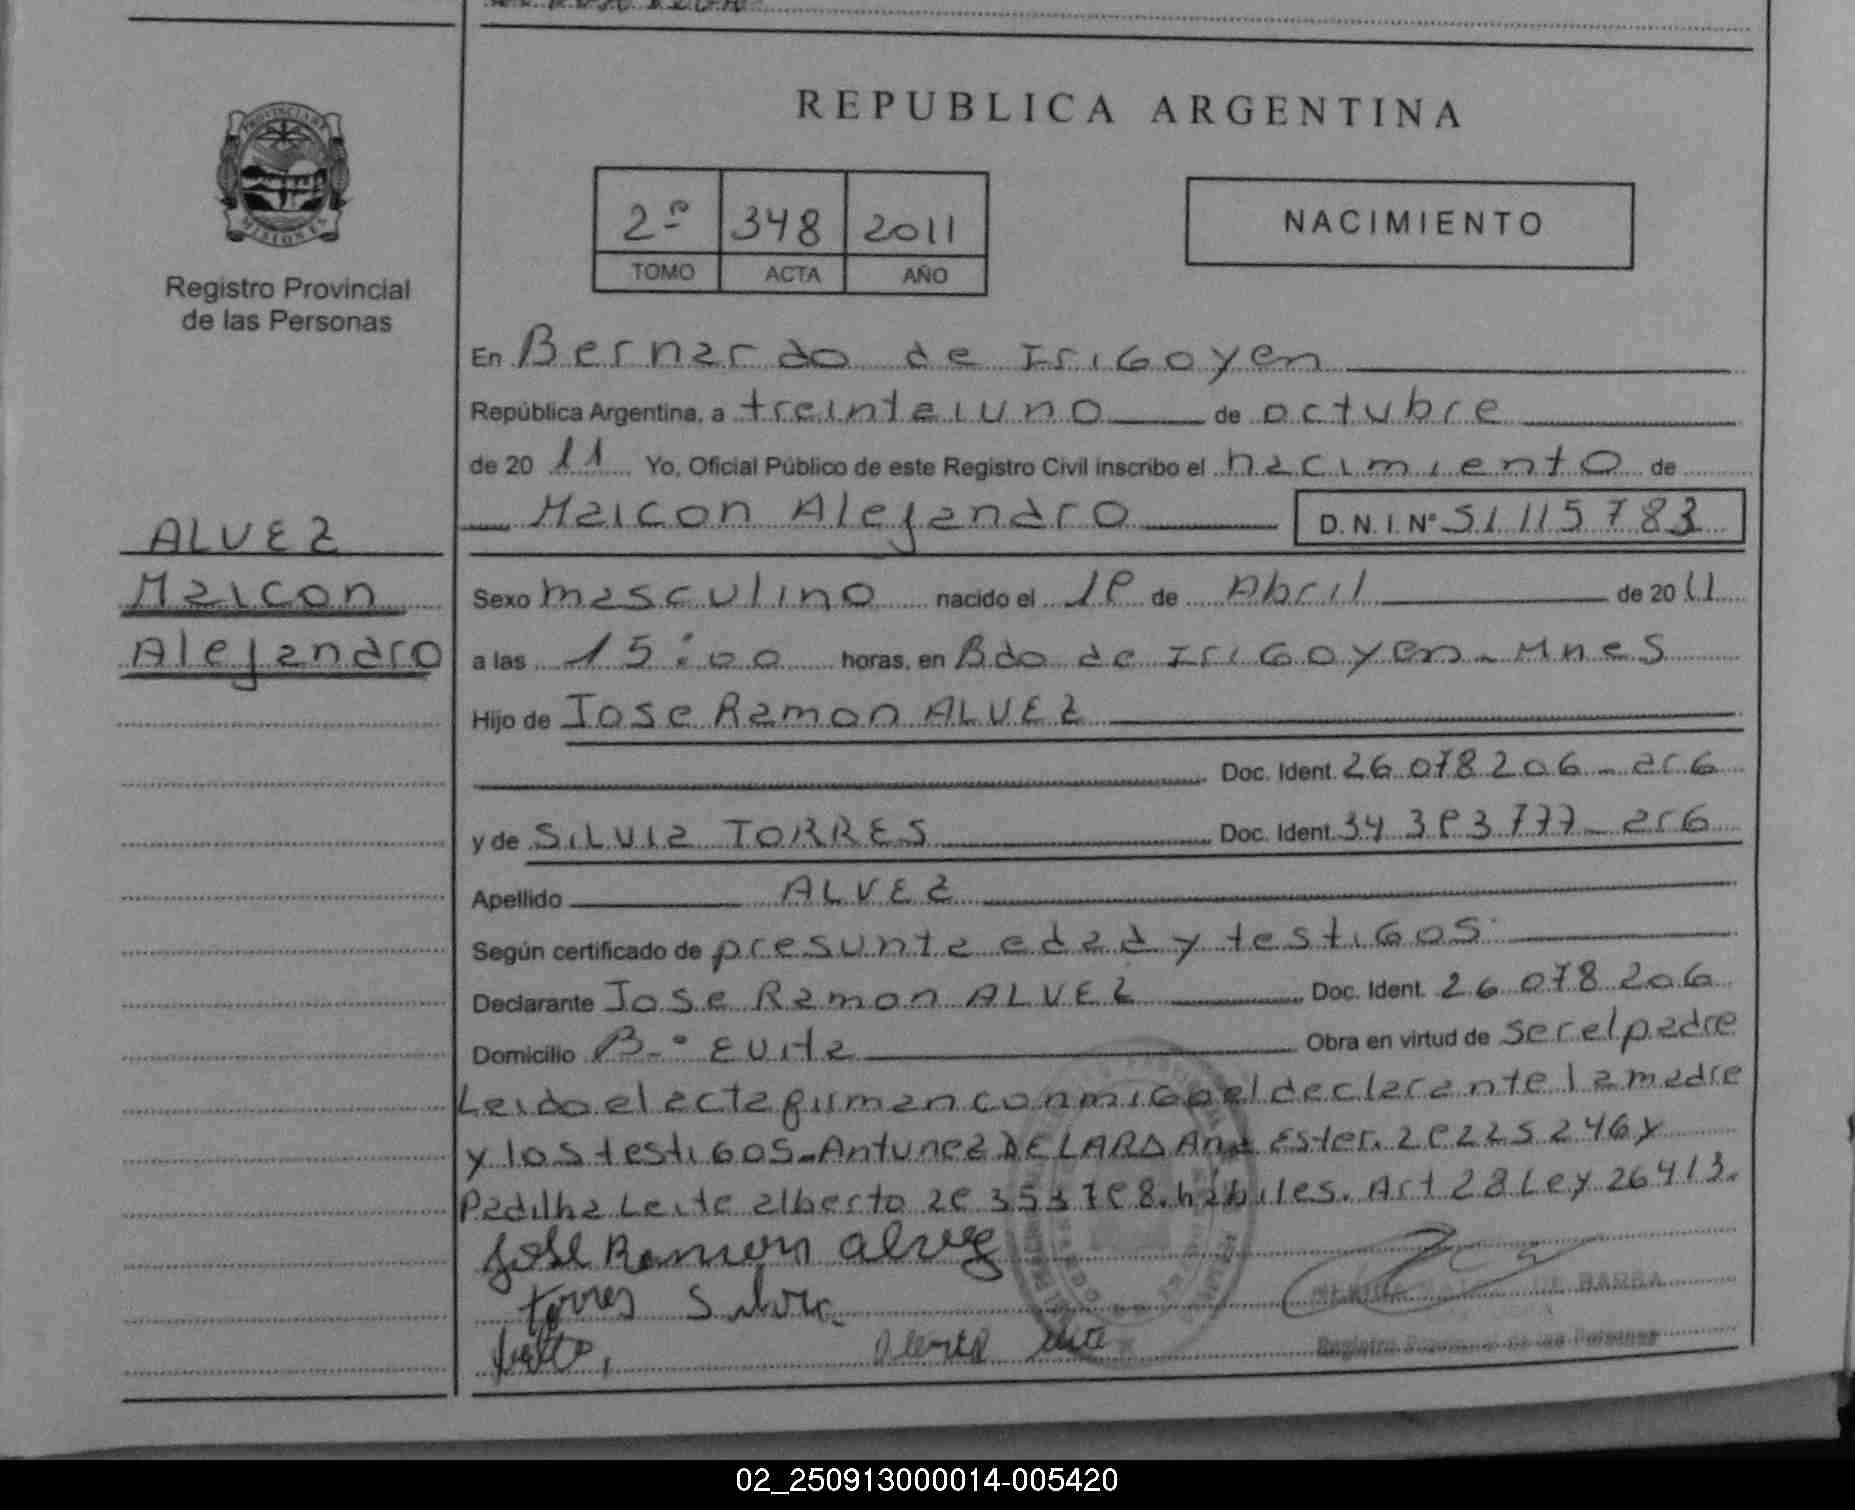 REPUBLICA ARGENTINA
PROVINCIA DE MISIONES
Registro Provincial
de las Personas
2º 348 2011
TOMO ACTA AÑO
NACIMIENTO
ALVEZ
Maicon
Alejandro
En Bernardo de Irigoyen
República Argentina, a treintaiuno de octubre
de 20 11 Yo, Oficial Público de este Registro Civil inscribo el nacimiento de
Maicon Alejandro D.N.I. Nº 51 115 783
Sexo masculino nacido el 19 de Abril de 20 11
a las 15:00 horas, en Bdo de Irigoyen - Mnes
Hijo de Jose Ramon ALVEZ
Doc. Ident. 26 078 206 - arg
y de SILVIA TORRES Doc. Ident. 34 393 777 - arg
Apellido ALVEZ
Según certificado de presunta edad y testigos
Declarante Jose Ramon ALVEZ Doc. Ident. 26 078 206
Domicilio B.º EVita Obra en virtud de ser el padre
Leido el acta firman conmigo el declarante la madre
y los testigos - Antunez DE LARA Ana Ester. 29225246 y
Padilha Leite alberto 29 353 798. habiles. Art 28 Ley 26413.
Jose Ramon alvez
torres Silvia
DE BARRA
Registro Provincial de las Personas
02_250913000014-005420